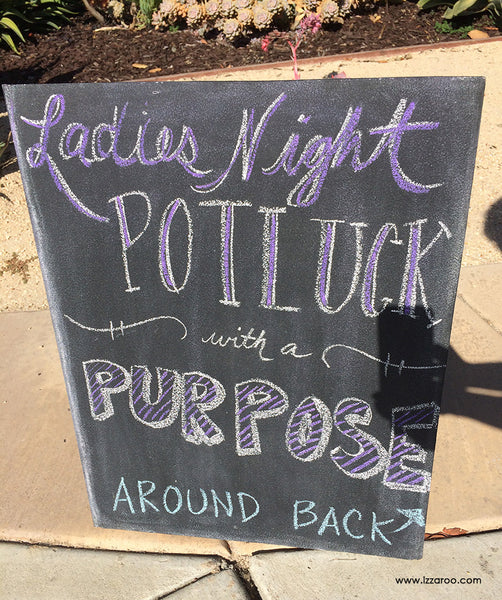 Ladies Night
POTLUCK
with a
PURPOSE
AROUND BACK
www.Izzaroo.com